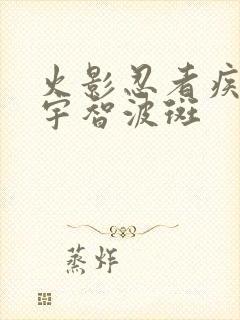 火影忍者疾
宇智波斑
蒸炸